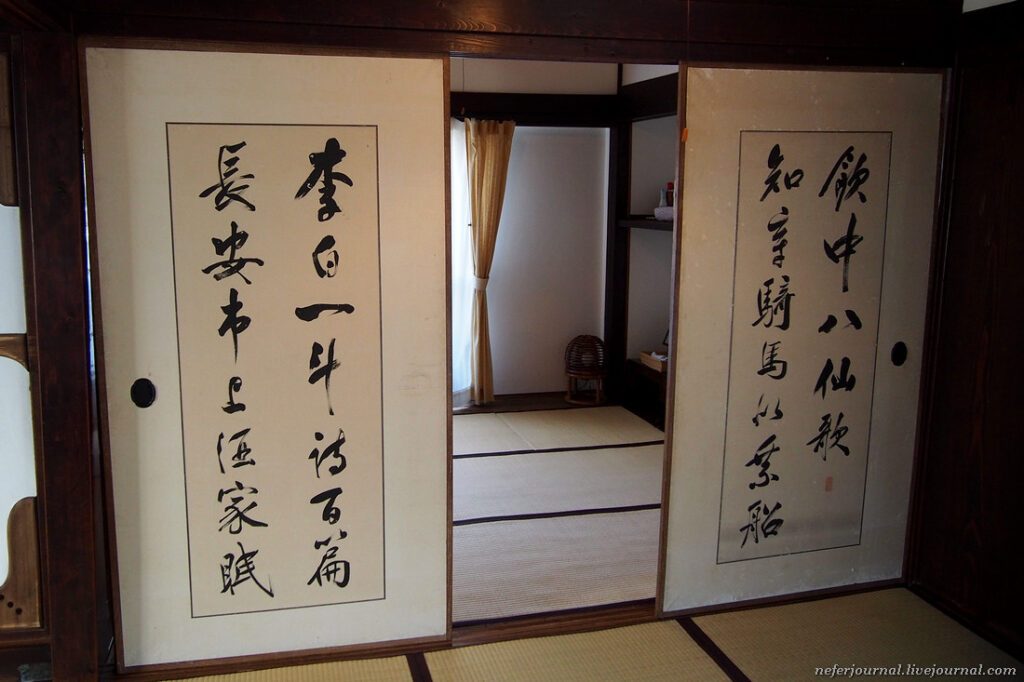 飲中八仙歌
知章騎馬似乘船
李白一斗詩百篇
長安市上酒家眠
neferjournal.livejournal.com